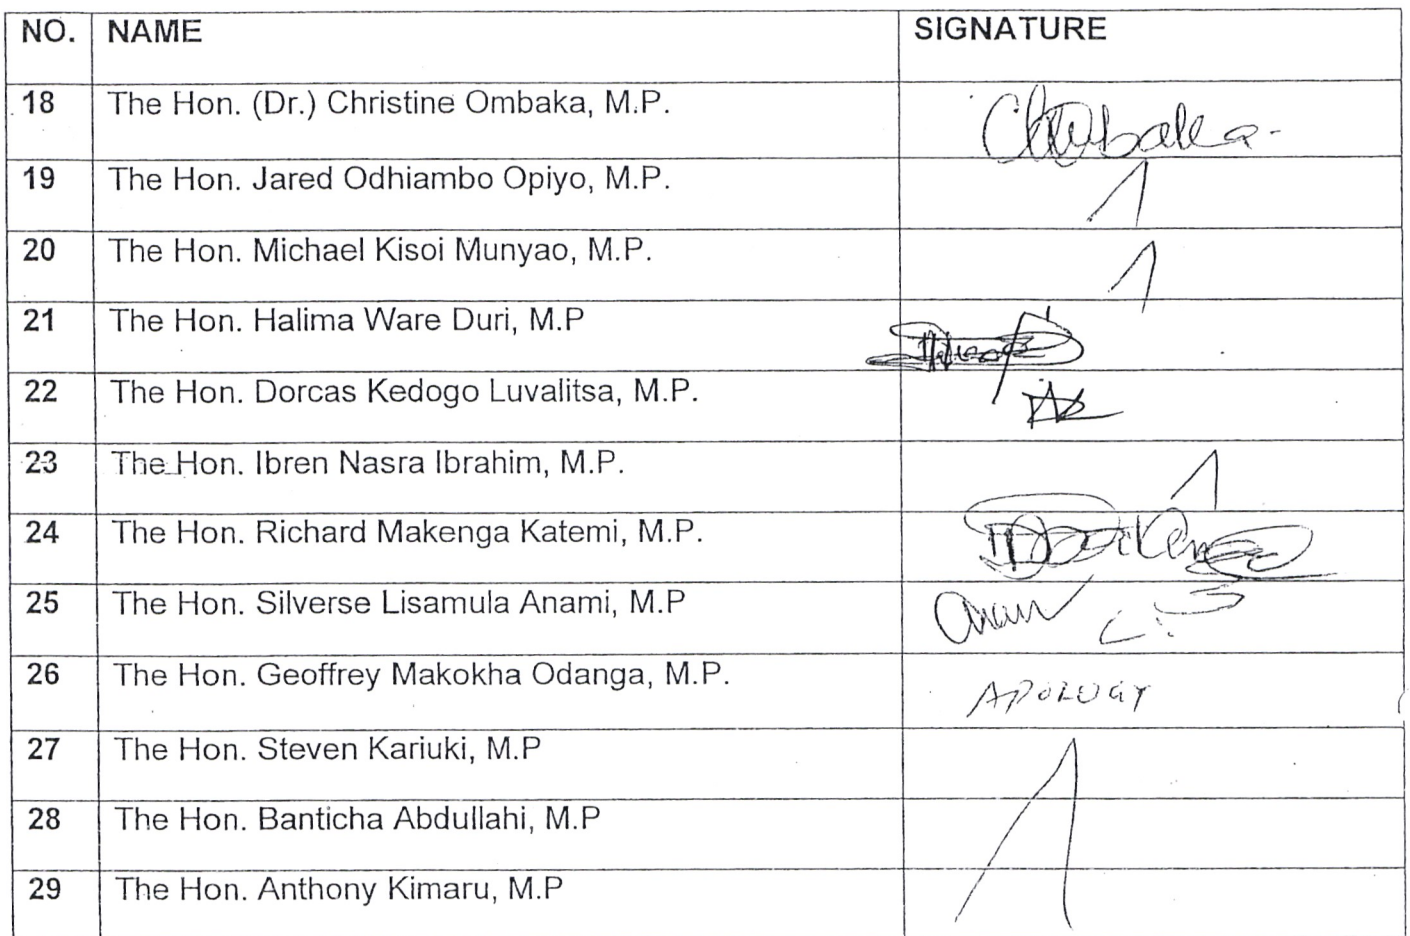 NO. NAME SIGNATURE
18 The Hon. (Dr.) Christine Ombaka, M.P.
19 The Hon. Jared Odhiambo Opiyo, M.P.
20 The Hon. Michael Kisoi Munyao, M.P.
21 The Hon. Halima Ware Duri, M.P
22 The Hon. Dorcas Kedogo Luvalitsa, M.P.
23 The Hon. Ibren Nasra Ibrahim, M.P.
24 The Hon. Richard Makenga Katemi, M.P.
25 The Hon. Silverse Lisamula Anami, M.P
26 The Hon. Geoffrey Makokha Odanga, M.P. APOLOGY
27 The Hon. Steven Kariuki, M.P
28 The Hon. Banticha Abdullahi, M.P
29 The Hon. Anthony Kimaru, M.P